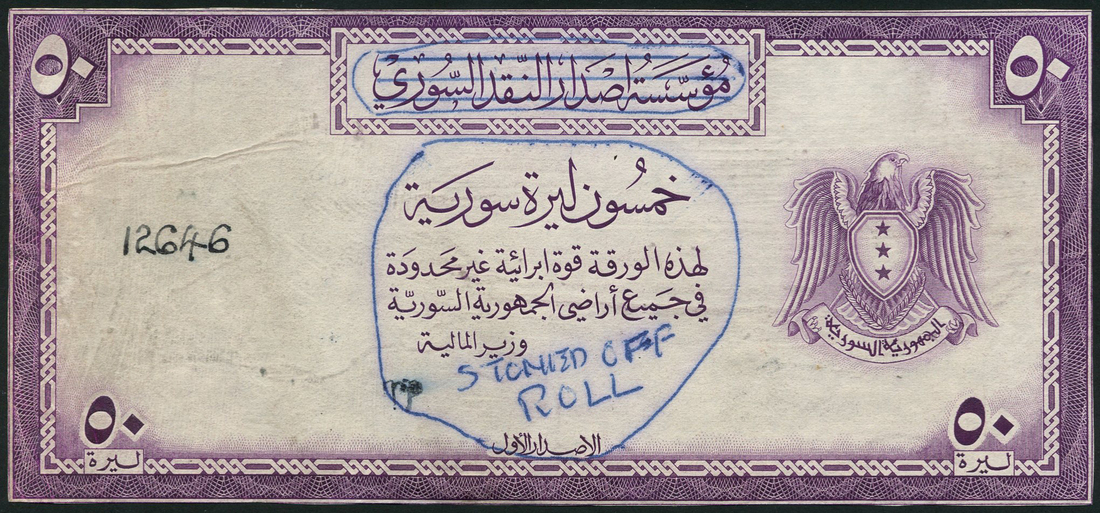 ٥٠
مؤسسة اصدار النقد السوري
٥٠
خمسون ليرة سورية
لهذه الورقة قوة ابرائية غير محدودة
في جميع أراضي الجمهورية السورية
وزير المالية
12646
الجمهورية السورية
STONED OFF
ROLL
الاصدار الاول
٥٠
ليرة
٥٠
ليرة